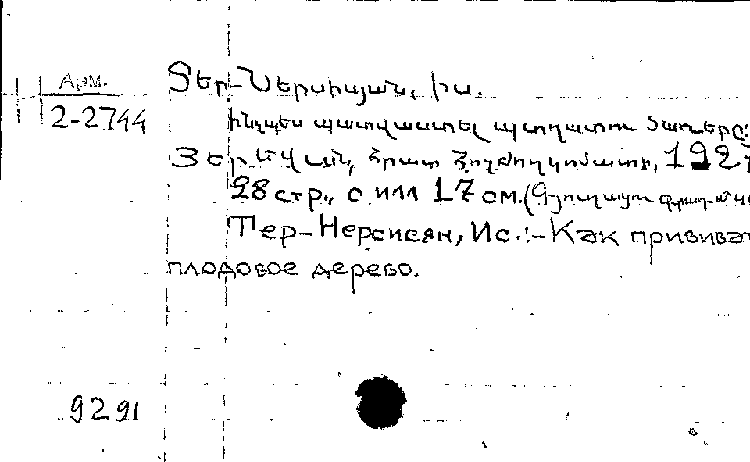 Арм.
2-2744
Տեր-Ներսիսյան, Իս.
Ինչպես պատվաստել պտղատու ծառերը:
Յերեվան, Հրատ. Հողժողկոմատի, 192
28 стр., с илл 17 см. (Գյուղատն
Тер-Нерсисян, Ис.:-Как прививат
плодовое дерево.
9291